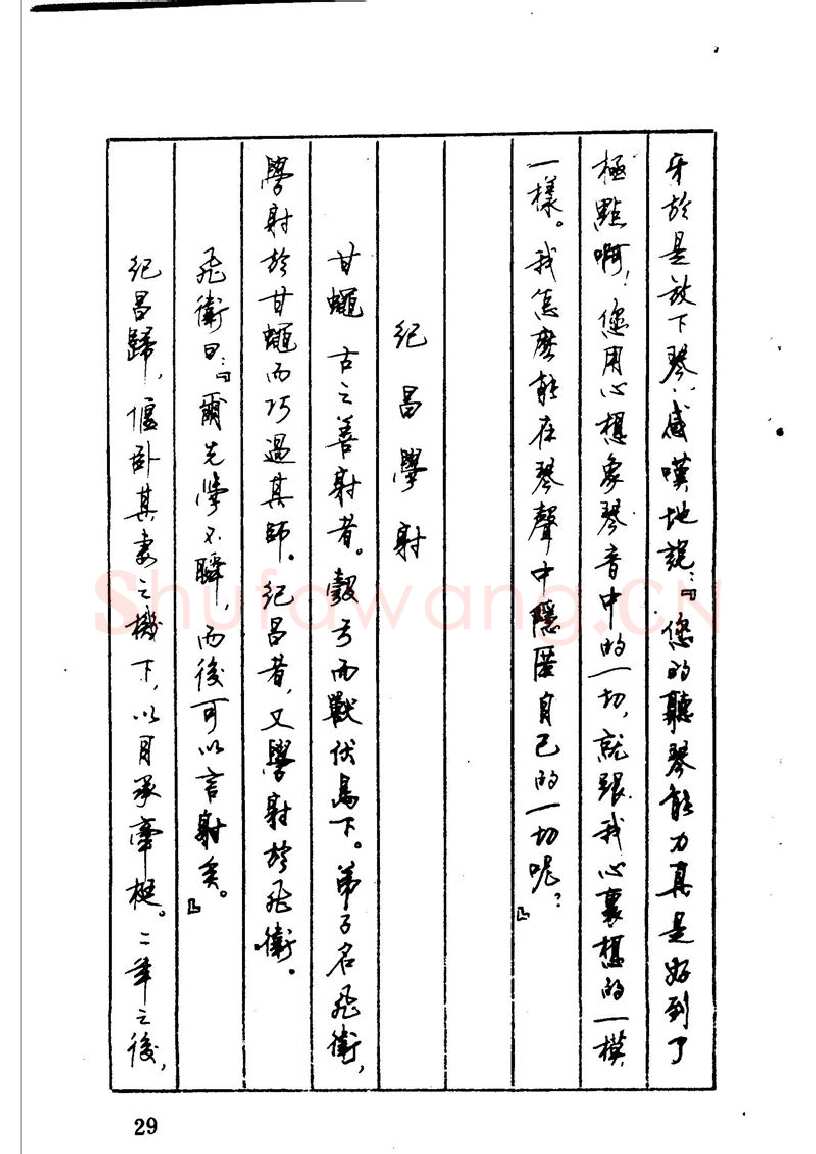 牙於是放下琴，感嘆地說：『您的聽琴能力真是好到了
極點啊！您用心想象琴音中的一切，就跟我心裏想的一模
一樣。我怎麽能在琴聲中隱匿自己的一切呢？』
紀昌學射
甘蠅 古之善射者。彀弓而獸伏鳥下。弟子名飛衛，
學射於甘蠅而巧過其師。紀昌者，又學射於飛衛。
飛衛曰：『爾先學不瞬，而後可以言射矣。』
紀昌歸，偃卧其妻之機下，以目承牽梃。二年之後，
29
Shufawang.CN